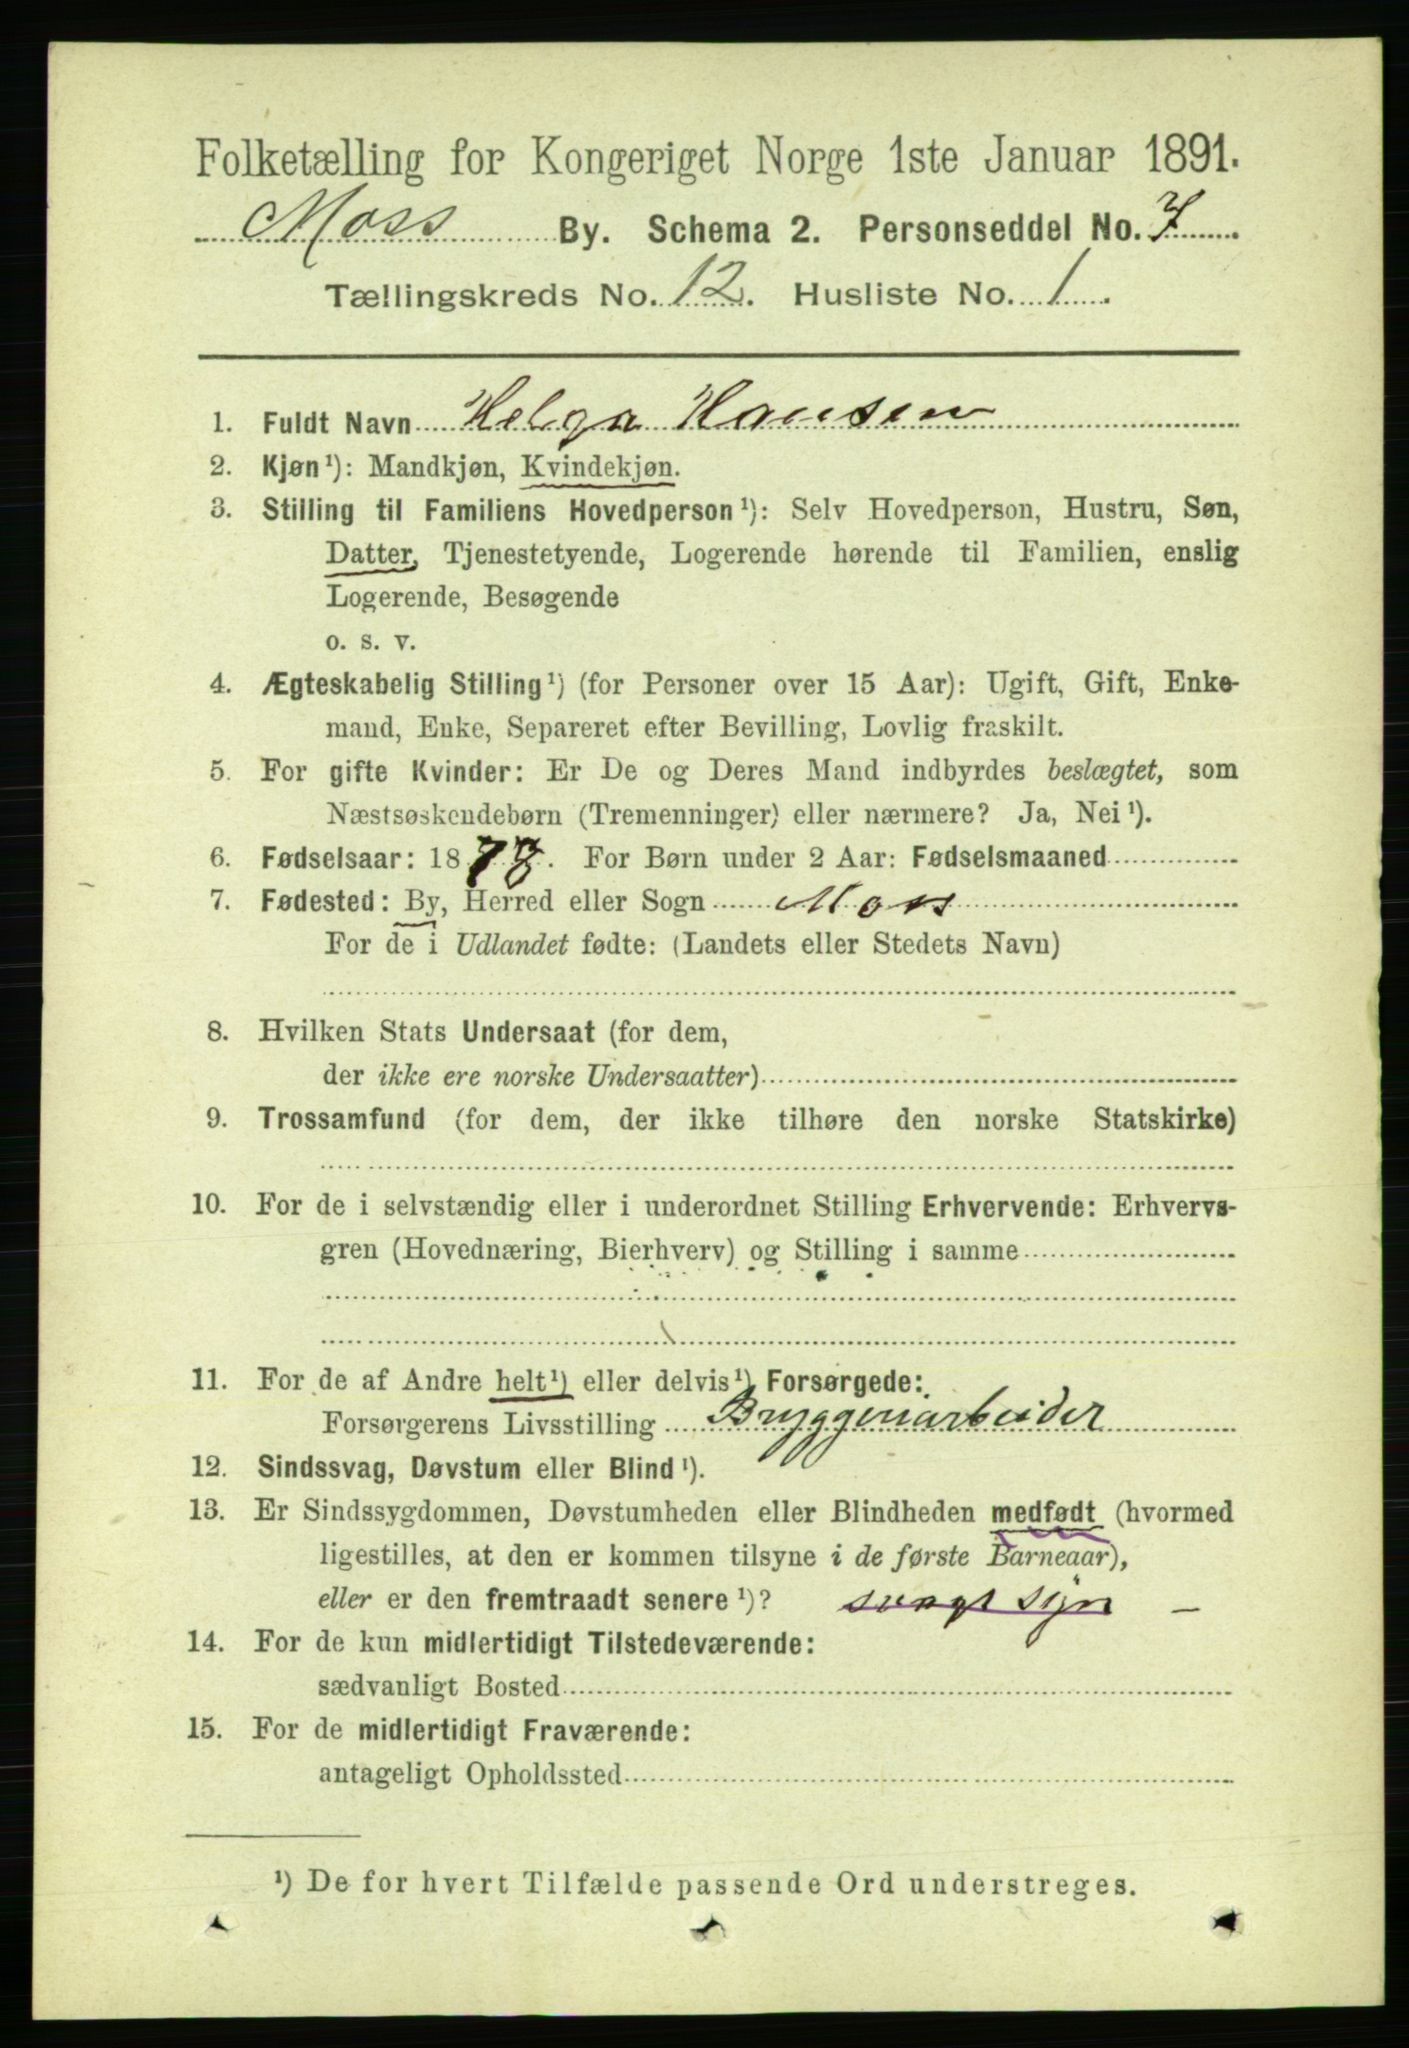 Folketælling for Kongeriget Norge 1ste Januar 1891.
Moss By. Schema 2. Personseddel No. 7
Tællingskreds No. 12. Husliste No. 1.
1. Fuldt Navn Helga Hansen
2. Kjøn¹): Mandkjøn, Kvindekjøn.
3. Stilling til Familiens Hovedperson¹): Selv Hovedperson, Hustru, Søn,
Datter, Tjenestetyende, Logerende hørende til Familien, enslig
Logerende, Besøgende
o. s. v.
4. Ægteskabelig Stilling¹) (for Personer over 15 Aar): Ugift, Gift, Enke-
mand, Enke, Separeret efter Bevilling, Lovlig fraskilt.
5. For gifte Kvinder: Er De og Deres Mand indbyrdes beslægtet, som
Næstsøskendebørn (Tremenninger) eller nærmere? Ja, Nei¹).
6. Fødselsaar: 1878. For Børn under 2 Aar: Fødselsmaaned
7. Fødested: By, Herred eller Sogn Moss
For de i Udlandet fødte: (Landets eller Stedets Navn)
8. Hvilken Stats Undersaat (for dem,
der ikke ere norske Undersaatter)
9. Trossamfund (for dem, der ikke tilhøre den norske Statskirke)
10. For de i selvstændig eller i underordnet Stilling Erhvervende: Erhvervs-
gren (Hovednæring, Bierhverv) og Stilling i samme
11. For de af Andre helt¹) eller delvis¹) Forsørgede:
Forsørgerens Livsstilling Bryggeriarbeider
12. Sindssvag, Døvstum eller Blind¹).
13. Er Sindssygdommen, Døvstumheden eller Blindheden medfødt (hvormed
ligestilles, at den er kommen tilsyne i de første Barneaar),
eller er den fremtraadt senere¹)? svagt syn –
14. For de kun midlertidigt Tilstedeværende:
sædvanligt Bosted
15. For de midlertidigt Fraværende:
antageligt Opholdssted
¹) De for hvert Tilfælde passende Ord understreges.